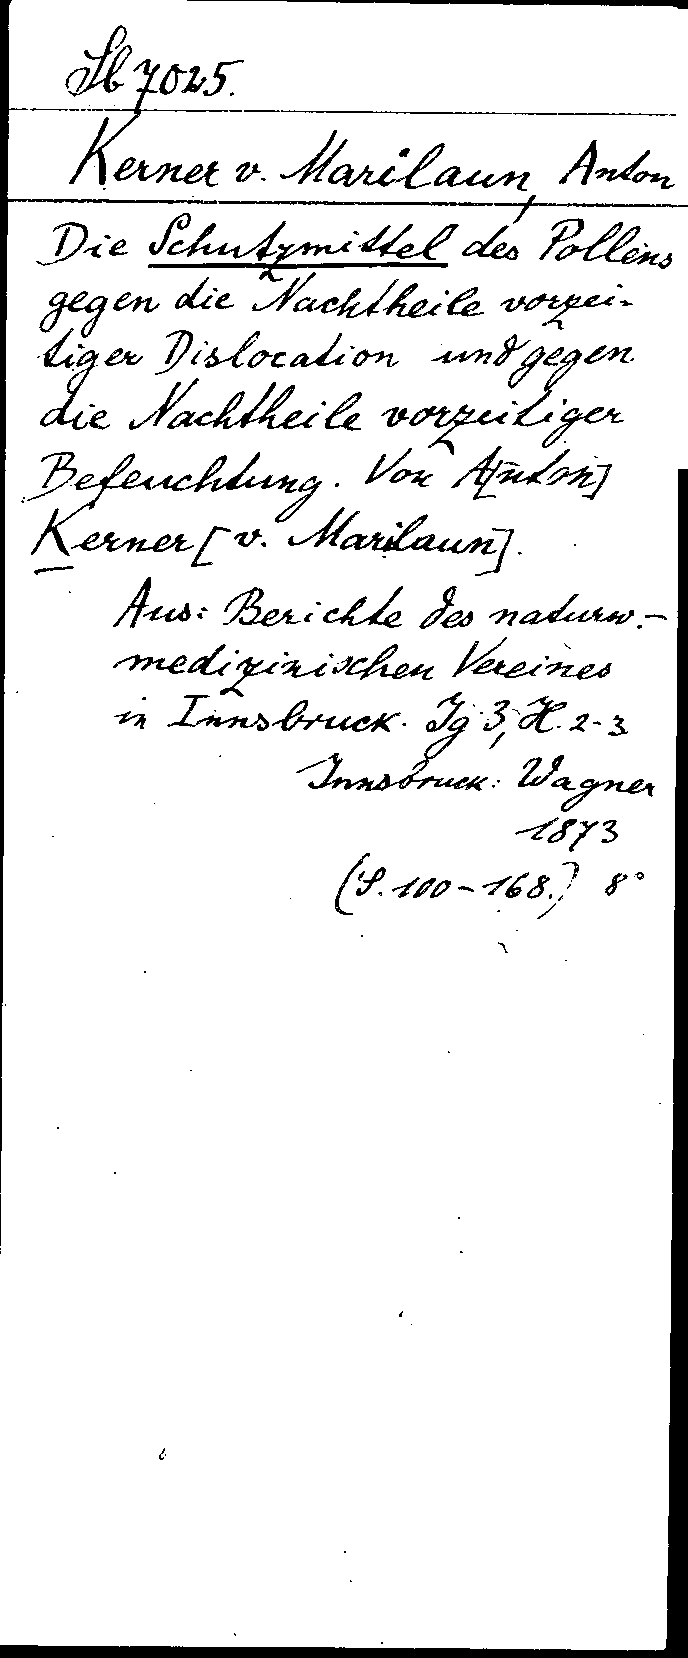 Sb 7025.
Kerner v. Marilaun, Anton
Die Schutzmittel des Pollens
gegen die Nachtheile vorzei-
tiger Dislocation und gegen
die Nachtheile vorzeitiger
Befeuchtung. Von A[nton]
Kerner [v. Marilaun].
Aus: Berichte des naturw.-
medizinischen Vereines
in Innsbruck. Jg 3, H. 2-3
Innsbruck: Wagner
1873
(S. 100-168.) 8°